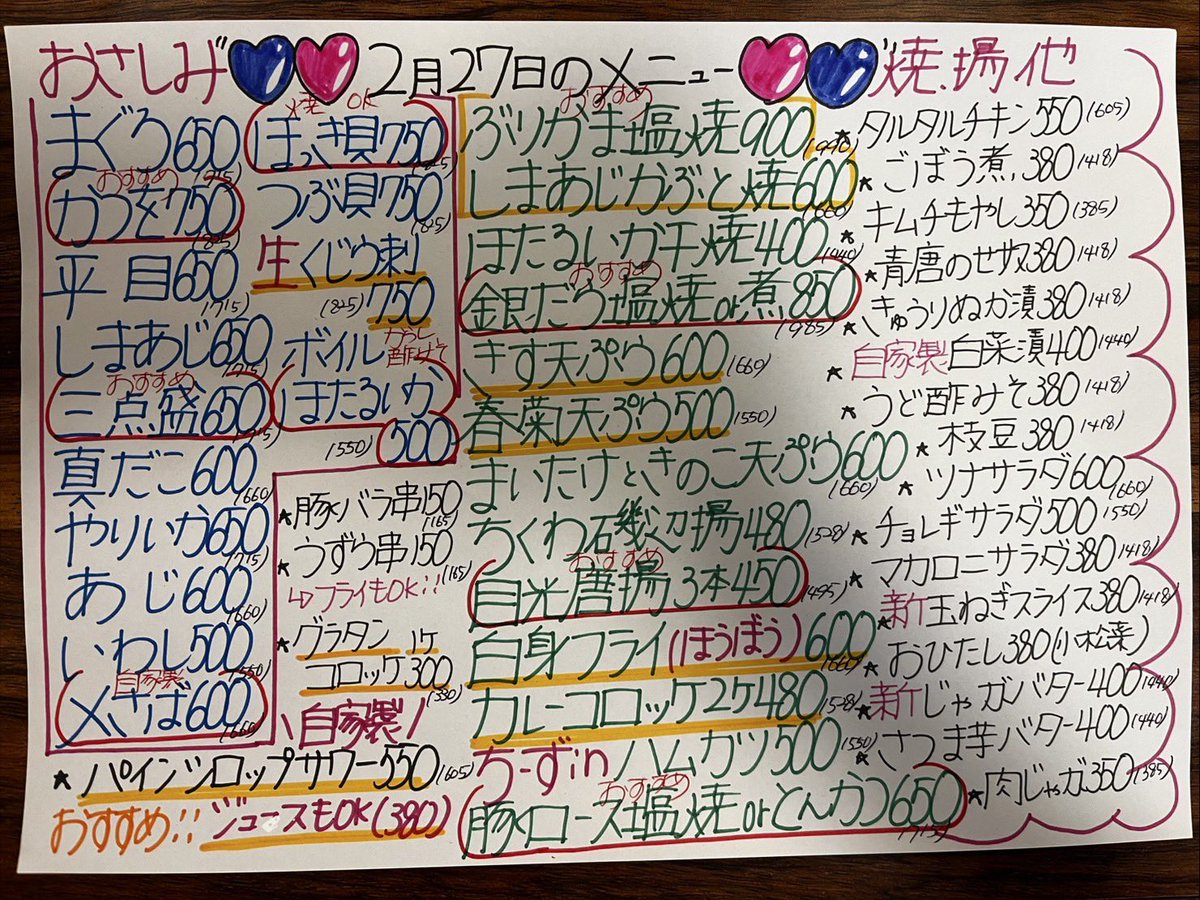 おさしみ
2月27日のメニュー
焼.揚.他
まぐろ650
(715)
おすすめ
かつを750
(825)
平目650
(715)
しまあじ650
(715)
おすすめ
三点盛650
(715)
真だこ600
(660)
やりいか650
(715)
あじ600
(660)
いわし500
(550)
自家製
〆さば600
(660)
焼 OK
ほっき貝750
(825)
つぶ貝750
(825)
生くじら刺
(825) 750
ボイル
からし
酢みそ
ほたるいか
(550) 500
★豚バラ串150
(165)
★うずら串150
(165)
↳フライもOK!!
★グラタン 1ヶ
コロッケ300
(330)
\自家製/
★パインシロップサワー550(605)
おすすめ!! ジュースもOK(380)
おすすめ
ぶりかま塩焼900
(990)
しまあじかぶと焼600
(660)
ほたるいか干焼400
(440)
おすすめ
銀だら塩焼or煮850
(935)
きす天ぷら600(660)
春菊天ぷら500(550)
まいたけときのこ天ぷら600
(660)
ちくわ石幾辺揚480(528)
おすすめ
目光唐揚3本450(495)
白身フライ(ほうぼう)600
(660)
カレーコロッケ2ヶ480(528)
ち-ずin ハムカツ500(550)
おすすめ
豚ロース塩焼orとんかつ650
(715)
★タルタルチキン550(605)
★ごぼう煮380(418)
キムチもやし350(385)
★青唐のせ奴380(418)
★きゅうりぬか漬380(418)
★自家製白菜漬400(440)
★うど酢みそ380(418)
★枝豆380(418)
★ツナサラダ600
(660)
★チョレギサラダ500(550)
★マカロニサラダ380(418)
★新玉ねぎスライス380(418)
★おひたし380(小松菜)
★新じゃがバター400(440)
★さつま芋バター400(440)
★肉じゃが350(385)